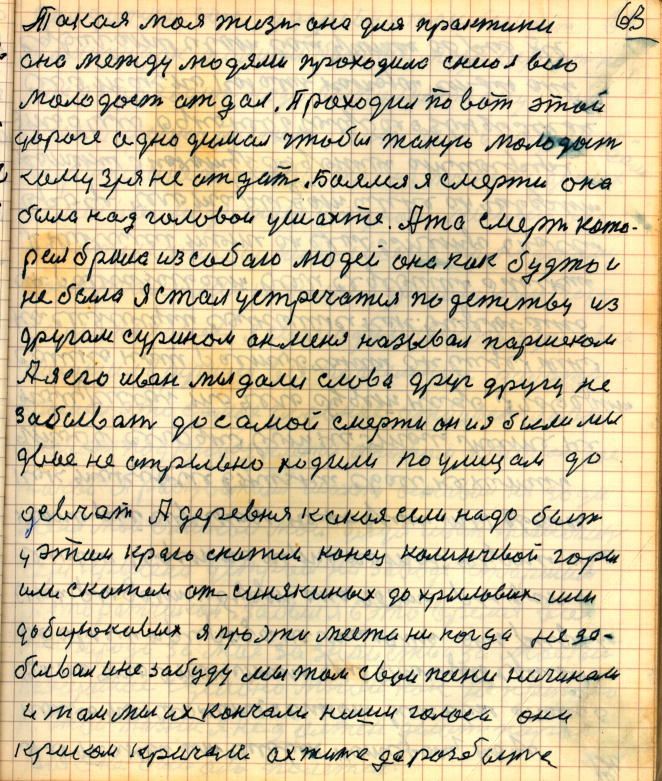 63
Такая моя жизн она для практики
она между людями проходила с нею я всю
молодост отдал. Проходил по вот этой
дороге одно думал чтобы такую молодост
кому зря не отдат. Боялся я смерти она
была над головой у шахте. А та смерт кото-
рая брала из собою людей она как будто и
не была Я стал устречатся по детству из
другам сурином он меня называл паршеком
А я его иван мы дали слова друг другу не
забыват до самой смерти он и я были мы
двое не отрывно ходили по улицам до
девчат А деревня какая если надо быт
у этом краю скажем конец калинчивой горы
или скажем от синякиных до крыловых или
до бирюкових я про эти места ни когда не за-
бывал и не забуду мы там свои песни начинали
и там мы их кончали наши голоса они
криком кричали ах житё да розбытё